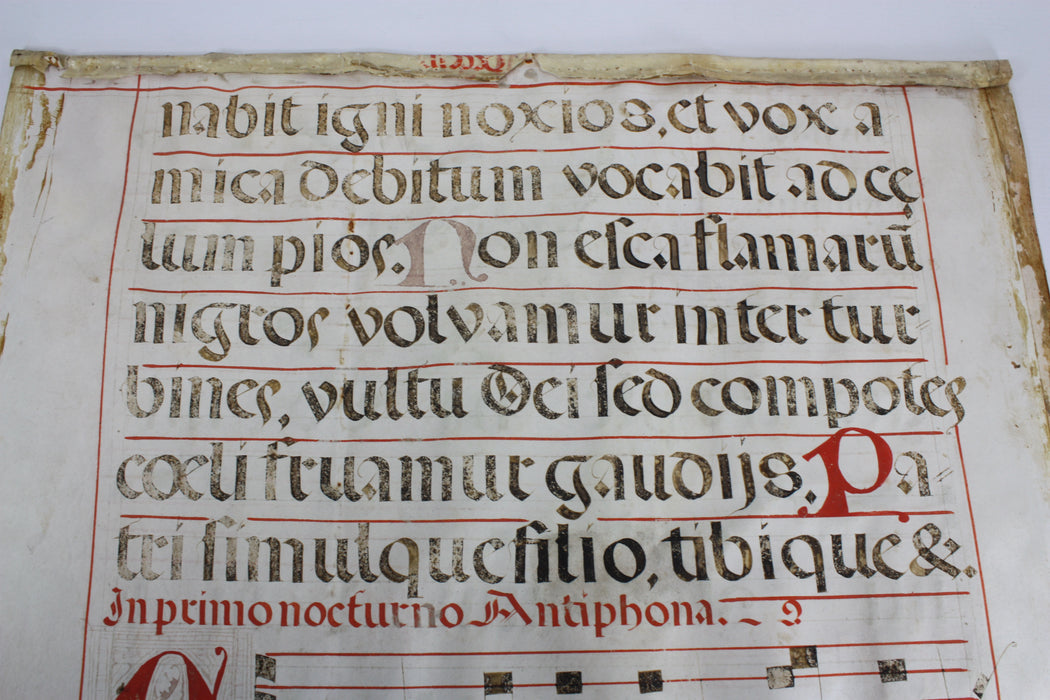 nabit igni noxios, et vox a
mica debitum vocabit ad cę
lum pios. Non esca flamarū
nigros volvamur inter tur
bines, vultu Dei sed compotes
cœli fruamur gaudijs. Pa
tri simulque filio, tibique &.
In primo nocturno Antiphona.